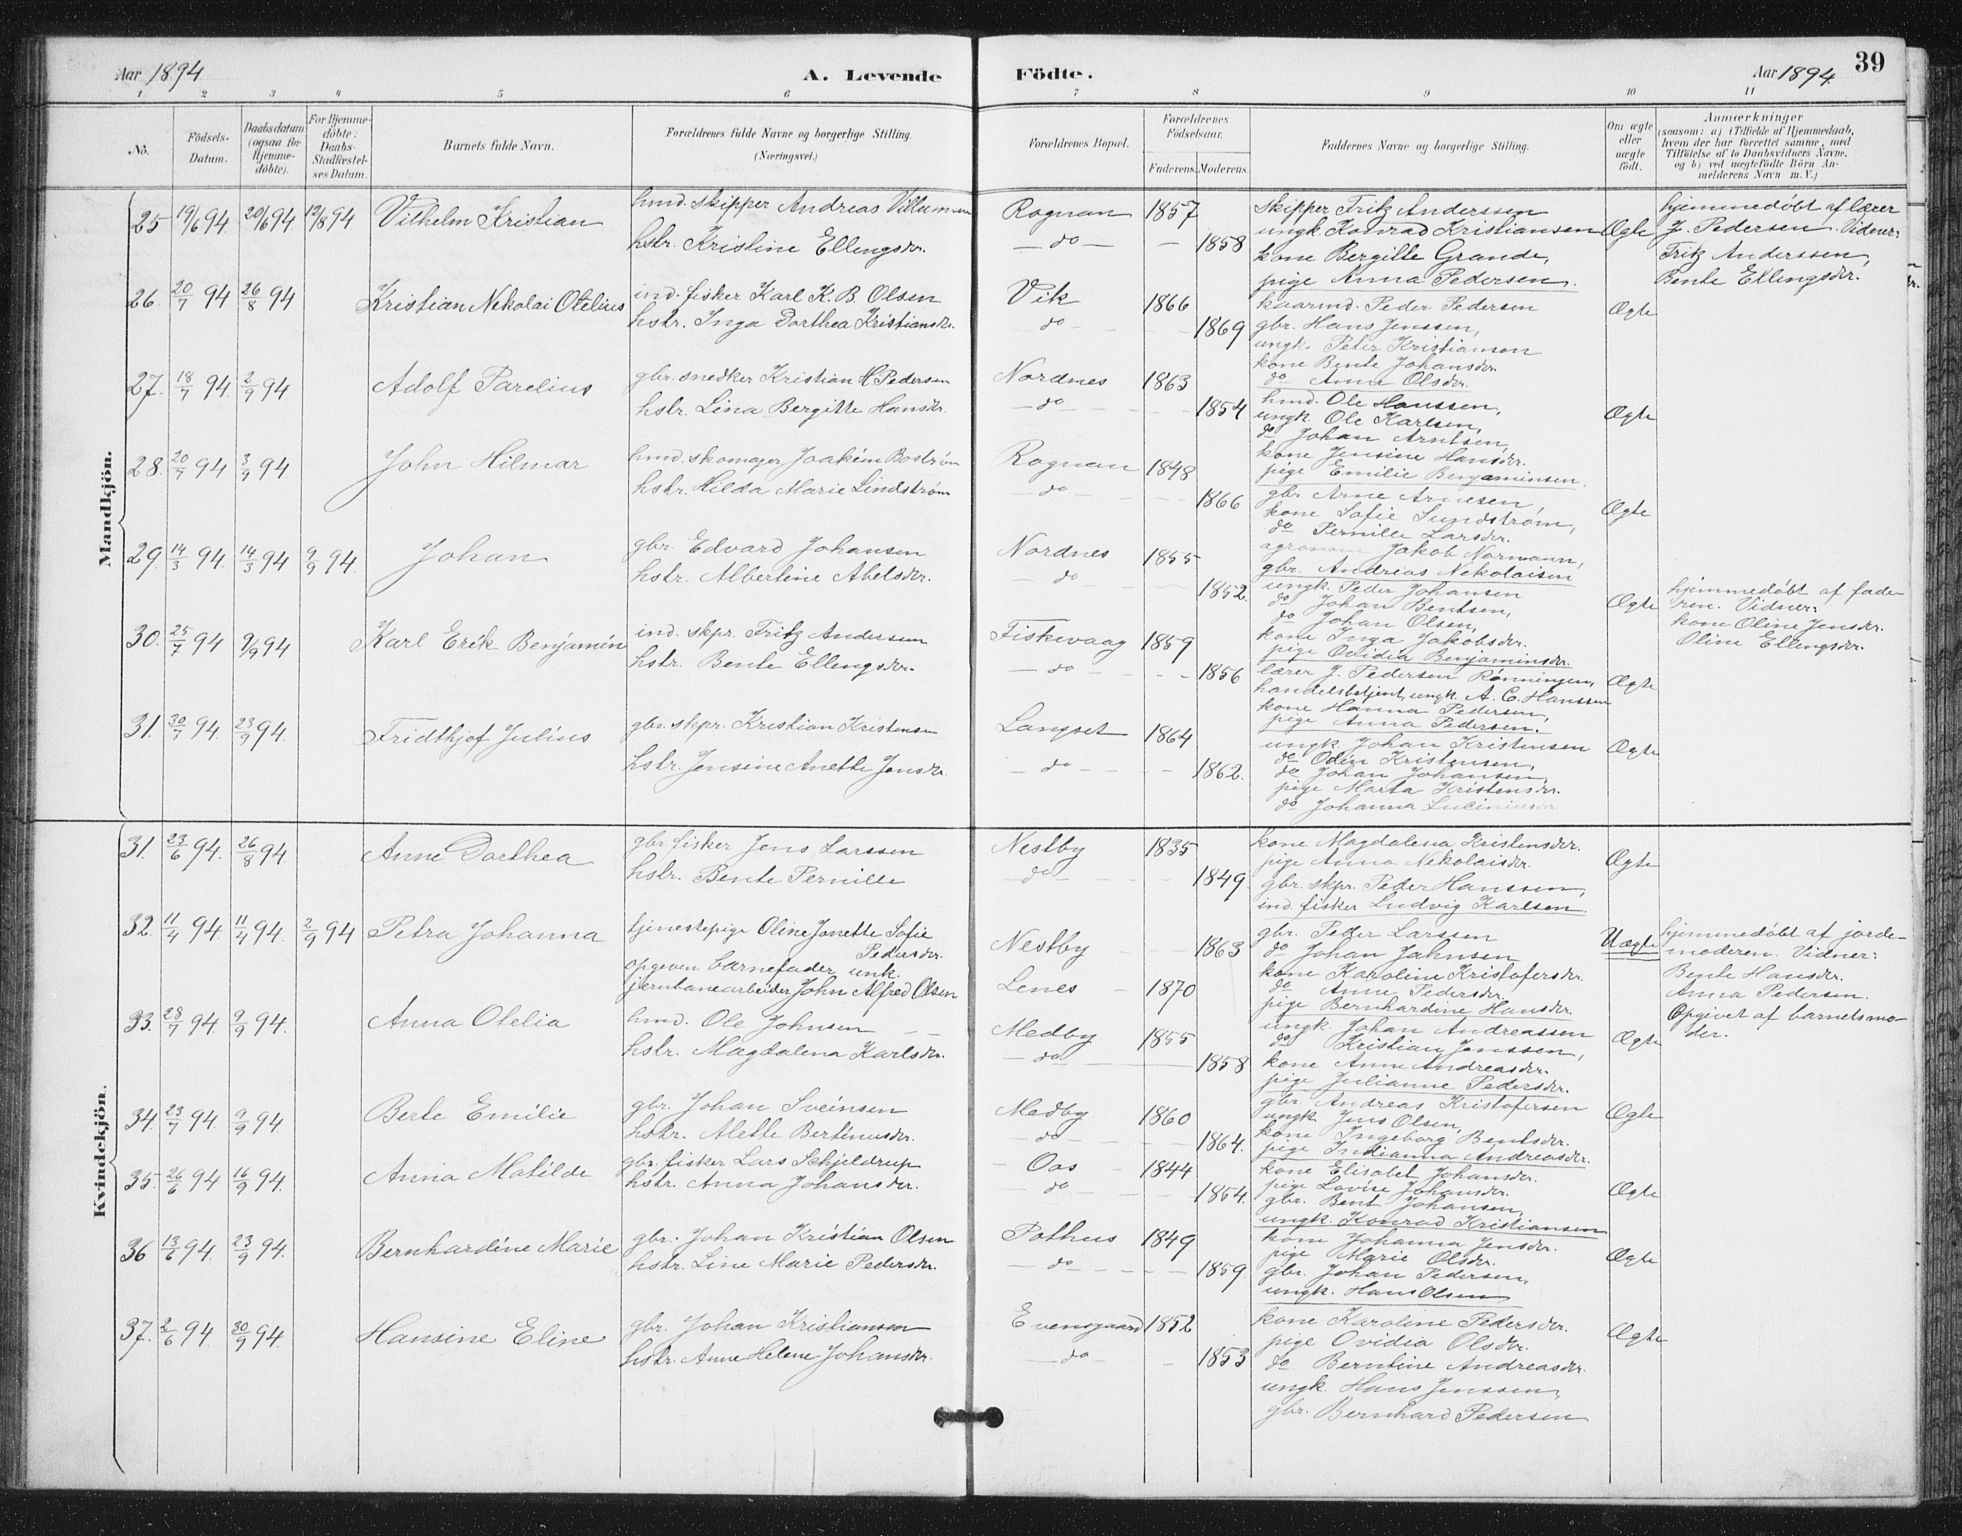 Aar 1894
A. Levende
Födte.
Aar 1894.
39
1 2 3 4 5 6 7 8 9 10 11
No.
Födsels-
Datum.
Daabsdatum
(ogsaa for
Hjemme-
döbte).
For Hjemme-
döbte:
Daabs-
Stadfæstel-
ses Datum.
Barnets fulde Navn.
Forældrenes fulde Navne og borgerlige Stilling.
(Næringsvei.)
Forældrenes Bopæl.
Forældrenes
Födselsaar.
Faderens. Moderens.
Faddernes Navne og borgerlige Stilling.
Om ægte
eller
uægte
födt.
Anmærkninger
(saasom: a) i Tilfælde af Hjemmedaab,
hvem der har forrettet samme, med
Tilföielse af to Daabsvidners Navne.
og b) ved uegtefödte Börn An-
melderens Navn m. V.)
Mandkjön.
25 19/6 94 20/6 94 12/8 94 Vilhelm Kristian
hmd. skipper Andreas Villumsen
hstr. Kristine Ellengsdr.
Rognan 1857
— do — — 1858
Skipper Fritz Anderssen
ungk. Konrad Kristiansen
kone Bergitte Grande,
pige Anna Pedersen.
Ægte
hjemmedøbt af lærer
J. Pedersen. Vidner:
Fritz Anderssen,
Bente Ellengsdr.
26. 20/7 94 26/8 94 Kristian Nekolai Otelius
ind. fisker Karl K. B. Olsen
hstr. Inga Dorthea Kristiansdr.
Vik 1866
do — — 1869
kaarmd. Peder Pedersen
gbr. Hans Jenssen,
ungk. Peter Kristiansen
kone Bente Johansdr.
do Anne Olsdr.
Ægte
27. 18/7 94. 2/9 94 Adolf Parelius
gbr. snedker Kristian H. Pedersen
hstr. Lina Bergitte Hansdr.
Nordnes 1863
— do — — 1854
hmd. Ole Hanssen,
ungk. Ole Karlsen,
do Johan Arntsen,
kone Jensine Hansdr.
pige Emilie Benjaminsen.
Ægte
28. 20/7 94 3/9 94. John Hilmar
hmd. skomager Joakim Bostrøm
hstr. Hilda Marie Lindstrøm
Rognan 1848
— do — — 1866
gbr. Arne Arnesen,
kone Sofie Sundstrøm,
do Pernille Larsdr.
agronom Jakob Normann,
gbr. Andreas Nekolaisen
Ægte
29. 14/3 94. 14/3 94 9/9 94. Johan
gbr. Edvard Johansen
hstr. Albertine Abelsdr.
Nordnes 1855
— do — — 1852.
ungk. Peder Johansen
do Johan Bentsen,
do Johan Olsen,
kone Inga Jakobsdr.
pige Ovidia Benjaminsdr.
Ægte
hjemmedøbt af fade-
ren. Vidner:
kone Oline Jensdr.
Oline Ellengsdr.
30. 25/7 94 9/9 94 Karl Erik Benjamin
ind. skpr. Fritz Anderssen
hstr. Bente Ellengsdr.
Fiskevaag 1859
— do — — 1856
lærer J. Pedersen Rønningen,
handelsbetjent, ungk. A. C. Hanssen
kone Hanna Pedersen,
pige Anna Pedersen.
Ægte
31. 30/7 94. 23/9 94. Fridthjof Julius
gbr. skpr. Kristian Kristensen
hstr. Jensine Anette Jonsdr.
Langset 1864
— do — — 1862.
ungk. Johan Kristensen
do Odin Kristensen,
do Johan Johansen,
pige Marta Kristensdr.
do Johanna
Ægte
Kvindekjön.
31. 23/6 94. 26/8 94 Anne Dorthea
gbr. fisker Jens Larssen
hstr. Bente Pernille
Nestby 1835
do — — 1849.
kone Magdalena Kristensdr.
pige Anna Nekolaisdr.
gbr. skpr. Peder Hanssen,
ind. fisker Ludvig Karlsen.
Ægte
32. 11/4 94. 11/4 94. 2/9 94 Petra Johanna
tjenestepige Oline Janette Sofie
Pedersdr.
opgiven barnefader unk.
jernbanearbeider John Alfred Olsen
Nestby — 1863
Lenes — 1870
gbr. Peder Larssen
do Johan Jahnsen
kone Karoline Kristofersdr.
do Anne Pedersdr.
pige Bernhardine Hansdr.
Uægte
hjemmedøbt af jorde-
moderen. Vidner:
Bente Hansdr.
Anna Pedersen.
Opgivet af barnets mo-
der.
33. 28/7 94 9/9 94. Anna Otelia
hmd. Ole Johnsen
hstr. Magdalena Karlsdr.
Medby 1855
— do — — 1858
ungk. Johan Andreassen
do Kristian Jenssen,
kone Anne Andreasdr.
pige Julianne Pedersdr.
Ægte
34. 23/7 94. 9/9 94. Berte Emilie
gbr. Johan Sveinsen
hstr. Alette Bertinusdr.
Medby 1860
do — — 1864.
gbr. Andreas Kristofersen
ungk. Jens Olsen,
kone Ingeborg Bentsdr.
pige Indianna Andreasdr.
Ægte
35. 26/6 94 16/9 94. Anna Matilde
gbr. fisker Lars Schjeldrup
hstr. Anna Johansdr.
— Oas — 1844
do — — 1854.
kone Elisabet Johansdr.
pige Lovise Johansdr.
gbr. Bent Johansen,
ungk. Konrad Kristiansen
Ægte
36 13/6 94. 23/9 94. Bernhardine Marie
gbr. Johan Kristian Olsen
hstr. Line Marie Pedersdr.
Pothus 1849
— do — — 1859.
kone Johanna Jensdr.
pige Marie Olsdr.
gbr. Johan Pedersen,
ungk. Hans Olsen
Ægte
37. 2/6 94 30/9 94. Hansine Eline
gbr. Johan Kristiansen
hstr. Anne Helene Johansdr.
Evensgaard 1852
— do — — 1853
kone Karoline Pedersdr.
pige Ovidia Olsdr.
do Berntine Andreasdr.
ungk. Hans Jenssen,
gbr. Bernhard Pedersen
Ægte